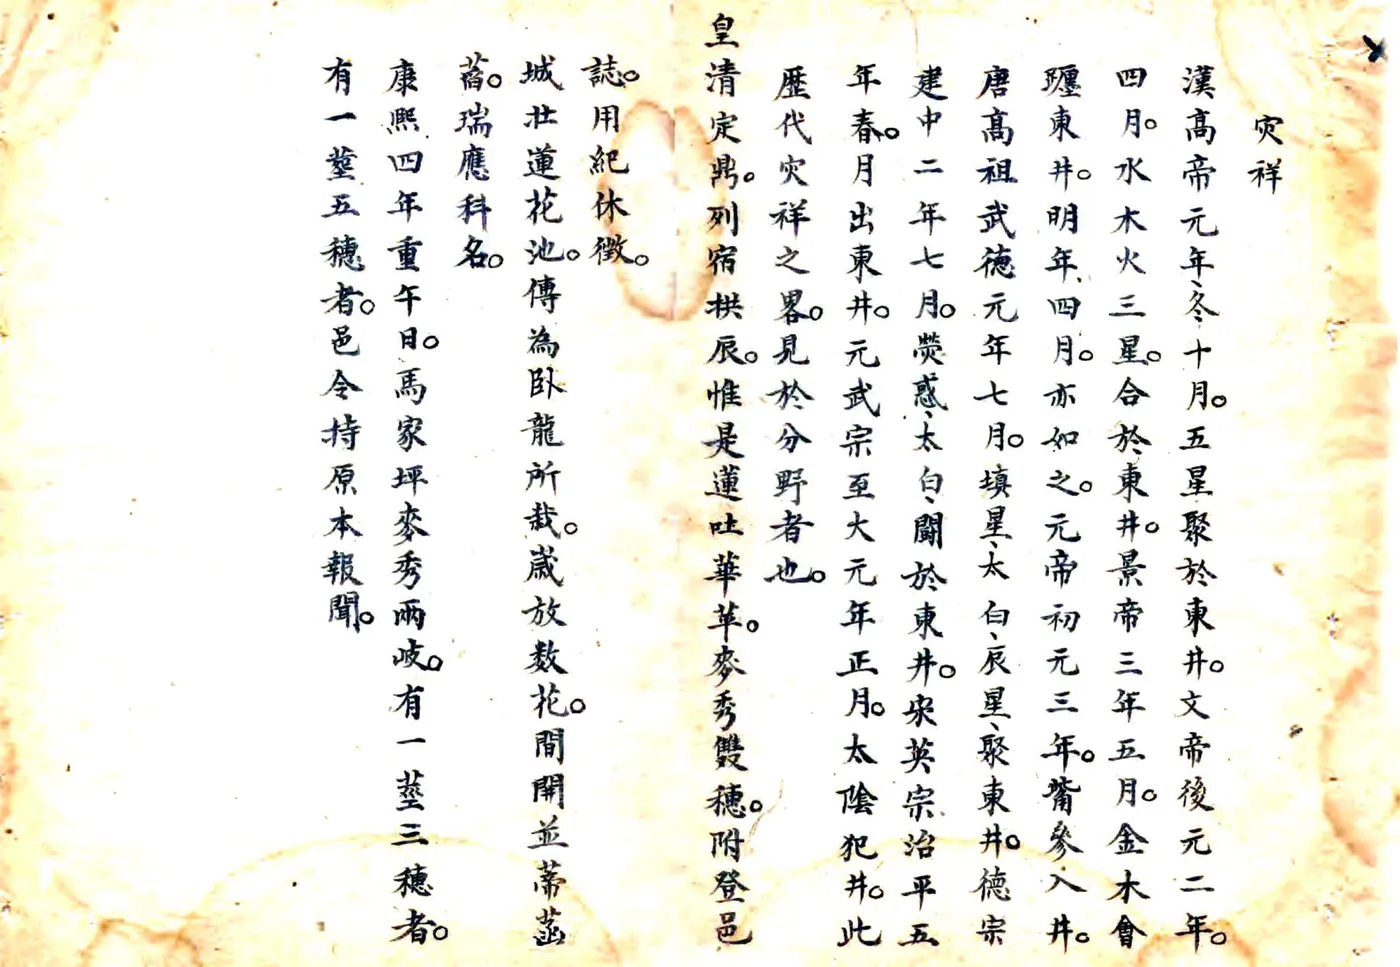 灾祥
漢高帝元年、冬十月。五星聚於東井。文帝後元二年。
四月。水木火三星。合於東井。景帝三年五月。金木會
躔東井。明年四月。亦如之。元帝初元三年。觜參入井。
唐高祖武德元年七月。填星、太白、辰星、聚東井。德宗
建中二年七月。熒惑、太白、闘於東井。宋英宗治平五
年春。月出東井。元武宗至大元年正月。太陰犯井。此
歷代灾祥之畧。見於分野者也。
皇清定鼎。列宿拱辰。惟是蓮吐華苹。麥秀雙穗。附登邑
誌。用紀休徵。
城壯蓮花池。傳為卧龍所栽。嵗放数花。間開並蒂菡
萏。瑞應科名。
康熙四年重午日。馬家坪麥秀兩岐。有一莖三穗者。
有一莖五穗者。邑令持原本報聞。